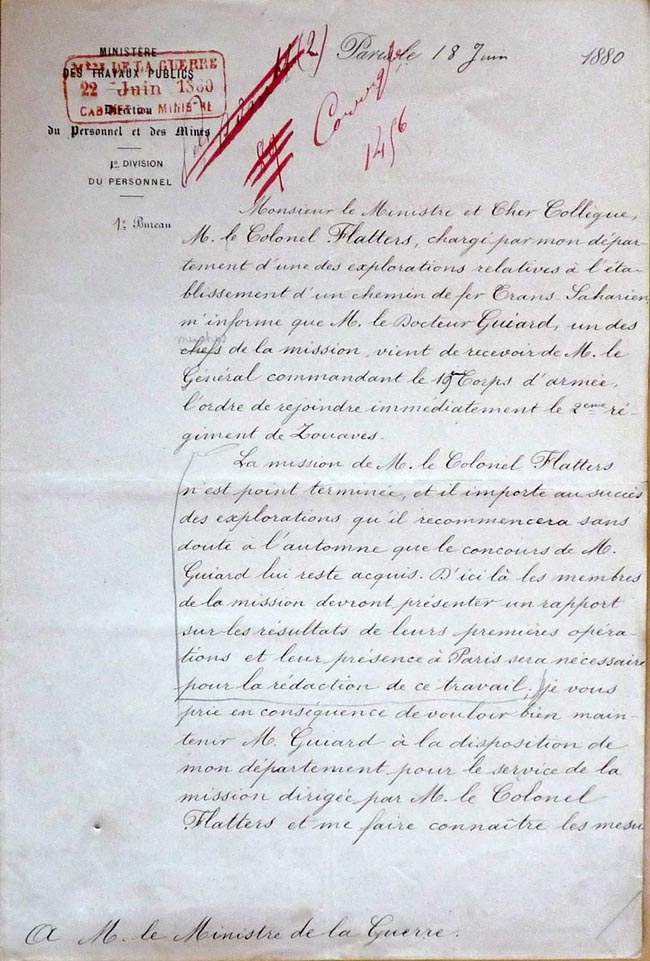 MINISTÈRE
DES TRAVAUX PUBLICS
Direction
du Personnel et des Mines
1re DIVISION
DU PERSONNEL
1er Bureau
Min. DE LA GUERRE
22 Juin 1880
CABINET DU MINISTRE
(2)
1456
Paris, le 18 Juin 1880
Monsieur le Ministre et Cher Collègue,
M. le Colonel Flatters, chargé par mon dépar-
tement d'une des explorations relatives à l'éta-
blissement d'un chemin de fer Trans-Saharien,
m'informe que M. le Docteur Guiard, un des
membres
chefs de la mission, vient de recevoir de M. le
Général commandant le 19e Corps d'armée,
l'ordre de rejoindre immédiatement le 2eme ré-
giment de Zouaves.
La mission de M. le Colonel Flatters
n'est point terminée, et il importe au succès
des explorations qu'il recommencera sans
doute à l'automne que le concours de M.
Guiard lui reste acquis. D'ici là les membres
de la mission devront présenter un rapport
sur les résultats de leurs premières opéra-
tions et leur présence à Paris sera nécessaire
pour la rédaction de ce travail; je vous
prie en conséquence de vouloir bien main-
tenir M. Guiard à la disposition de
mon département pour le service de la
mission dirigée par M. le Colonel
Flatters et me faire connaître les mesu
A M. le Ministre de la Guerre.